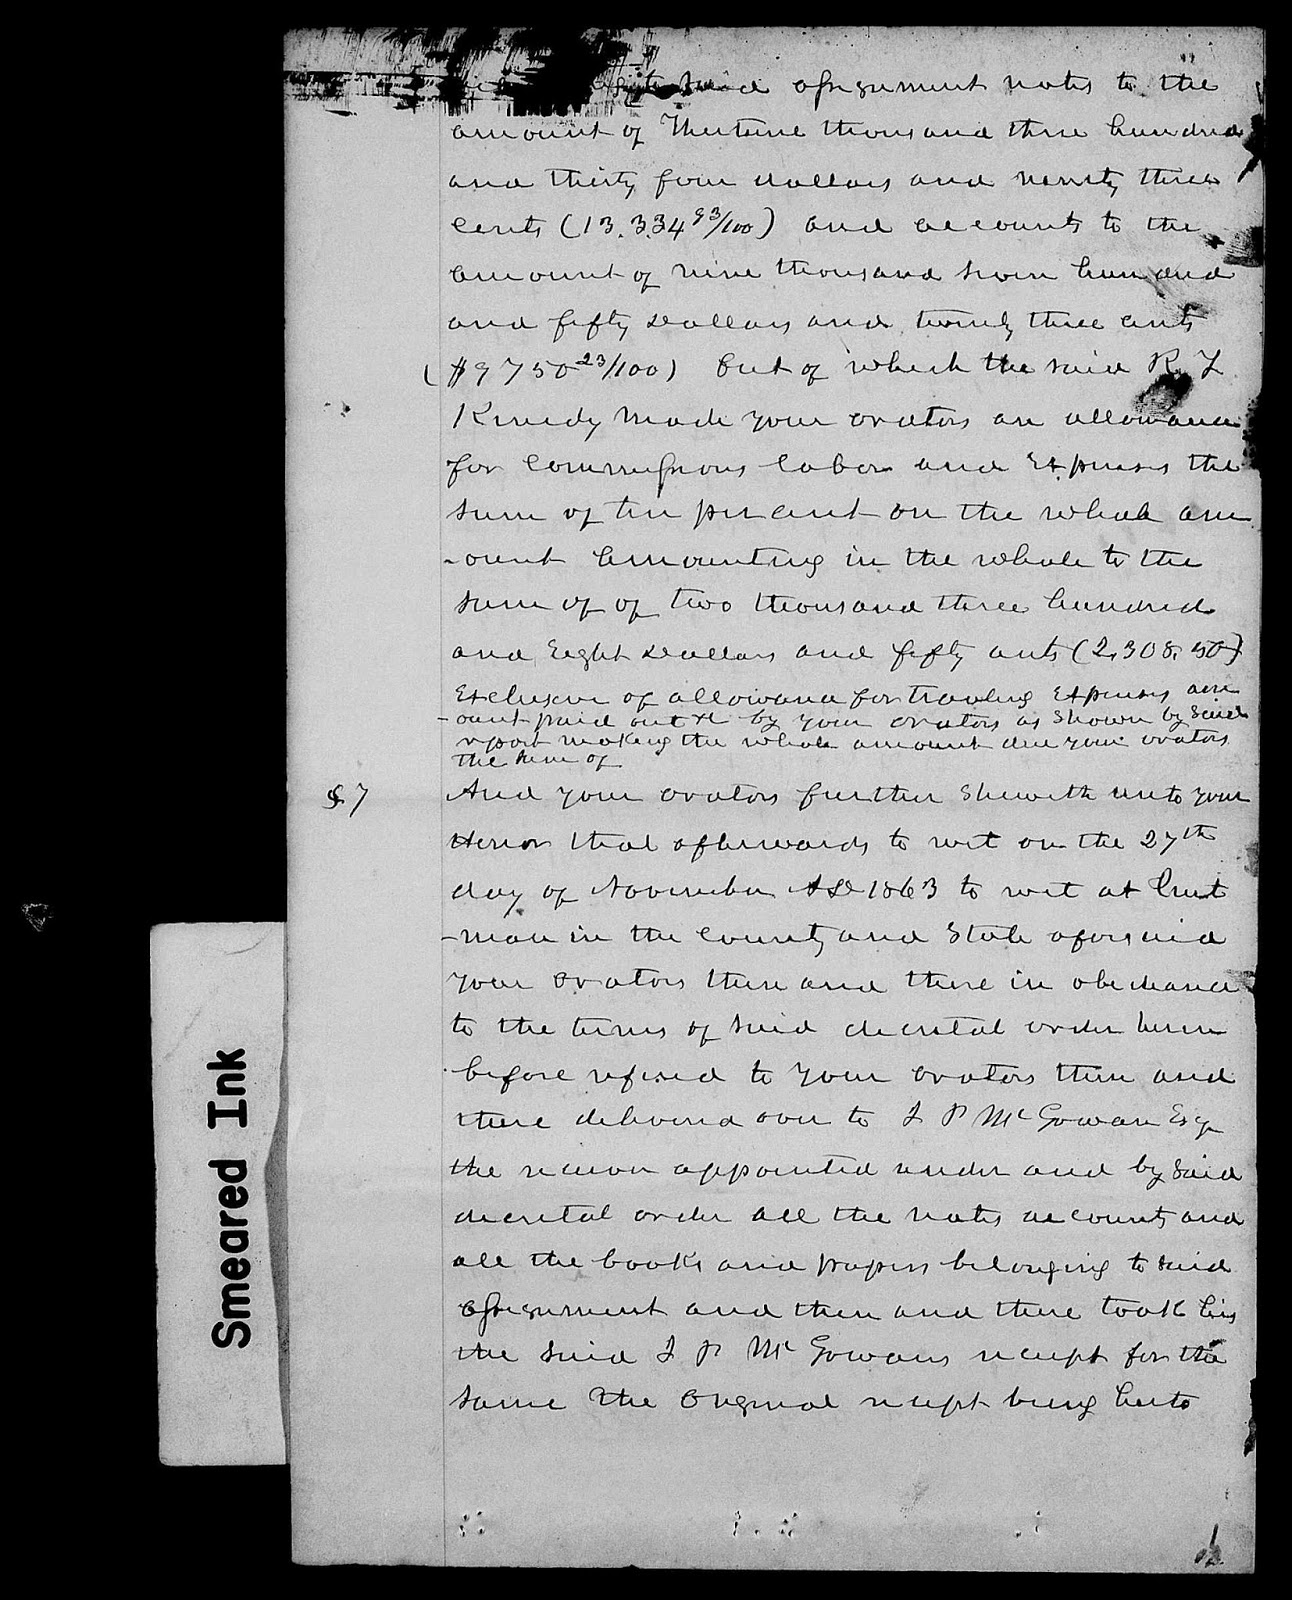 to said assignment notes to the
amount of Thirteene thousand three hundred
and thirty four dollars and ninety three
cents (13.334 93/100) and accounts to the
amount of nine thousand seven hundred
and fifty Dollars and twenty three cents
($9750 23/100) Out of which the said R. F.
Kenedy made your orators an allowance
for commissions labor and Expenses the
sum of ten per cent on the whole am
-ount amounting in the whole to the
sum of of two thousand three hundred
and Eight Dollars and fifty cents (2,308.50)
Exclusive of allowance for traveling Expenses am
-ount paid out &c by your orators as shown by said
report making the whole amount due your orators
the sum of
§ 7 And your orators further sheweth unto your
Honor that afterwards to wit on the 27th
day of November AD 1863 to wit at
-man in the county and State aforesaid
your orators then and there in obediance
to the terms of said decretal order herein
before refered to your orators then and
there delivered over to J P McGowan Esq
the receiver appointed under and by said
decretal order all the notes accounts and
all the books and papers belonging to said
assignment and then and there took his
the said J P McGowans receipt for the
same The Original receipt being hereto
Smeared Ink